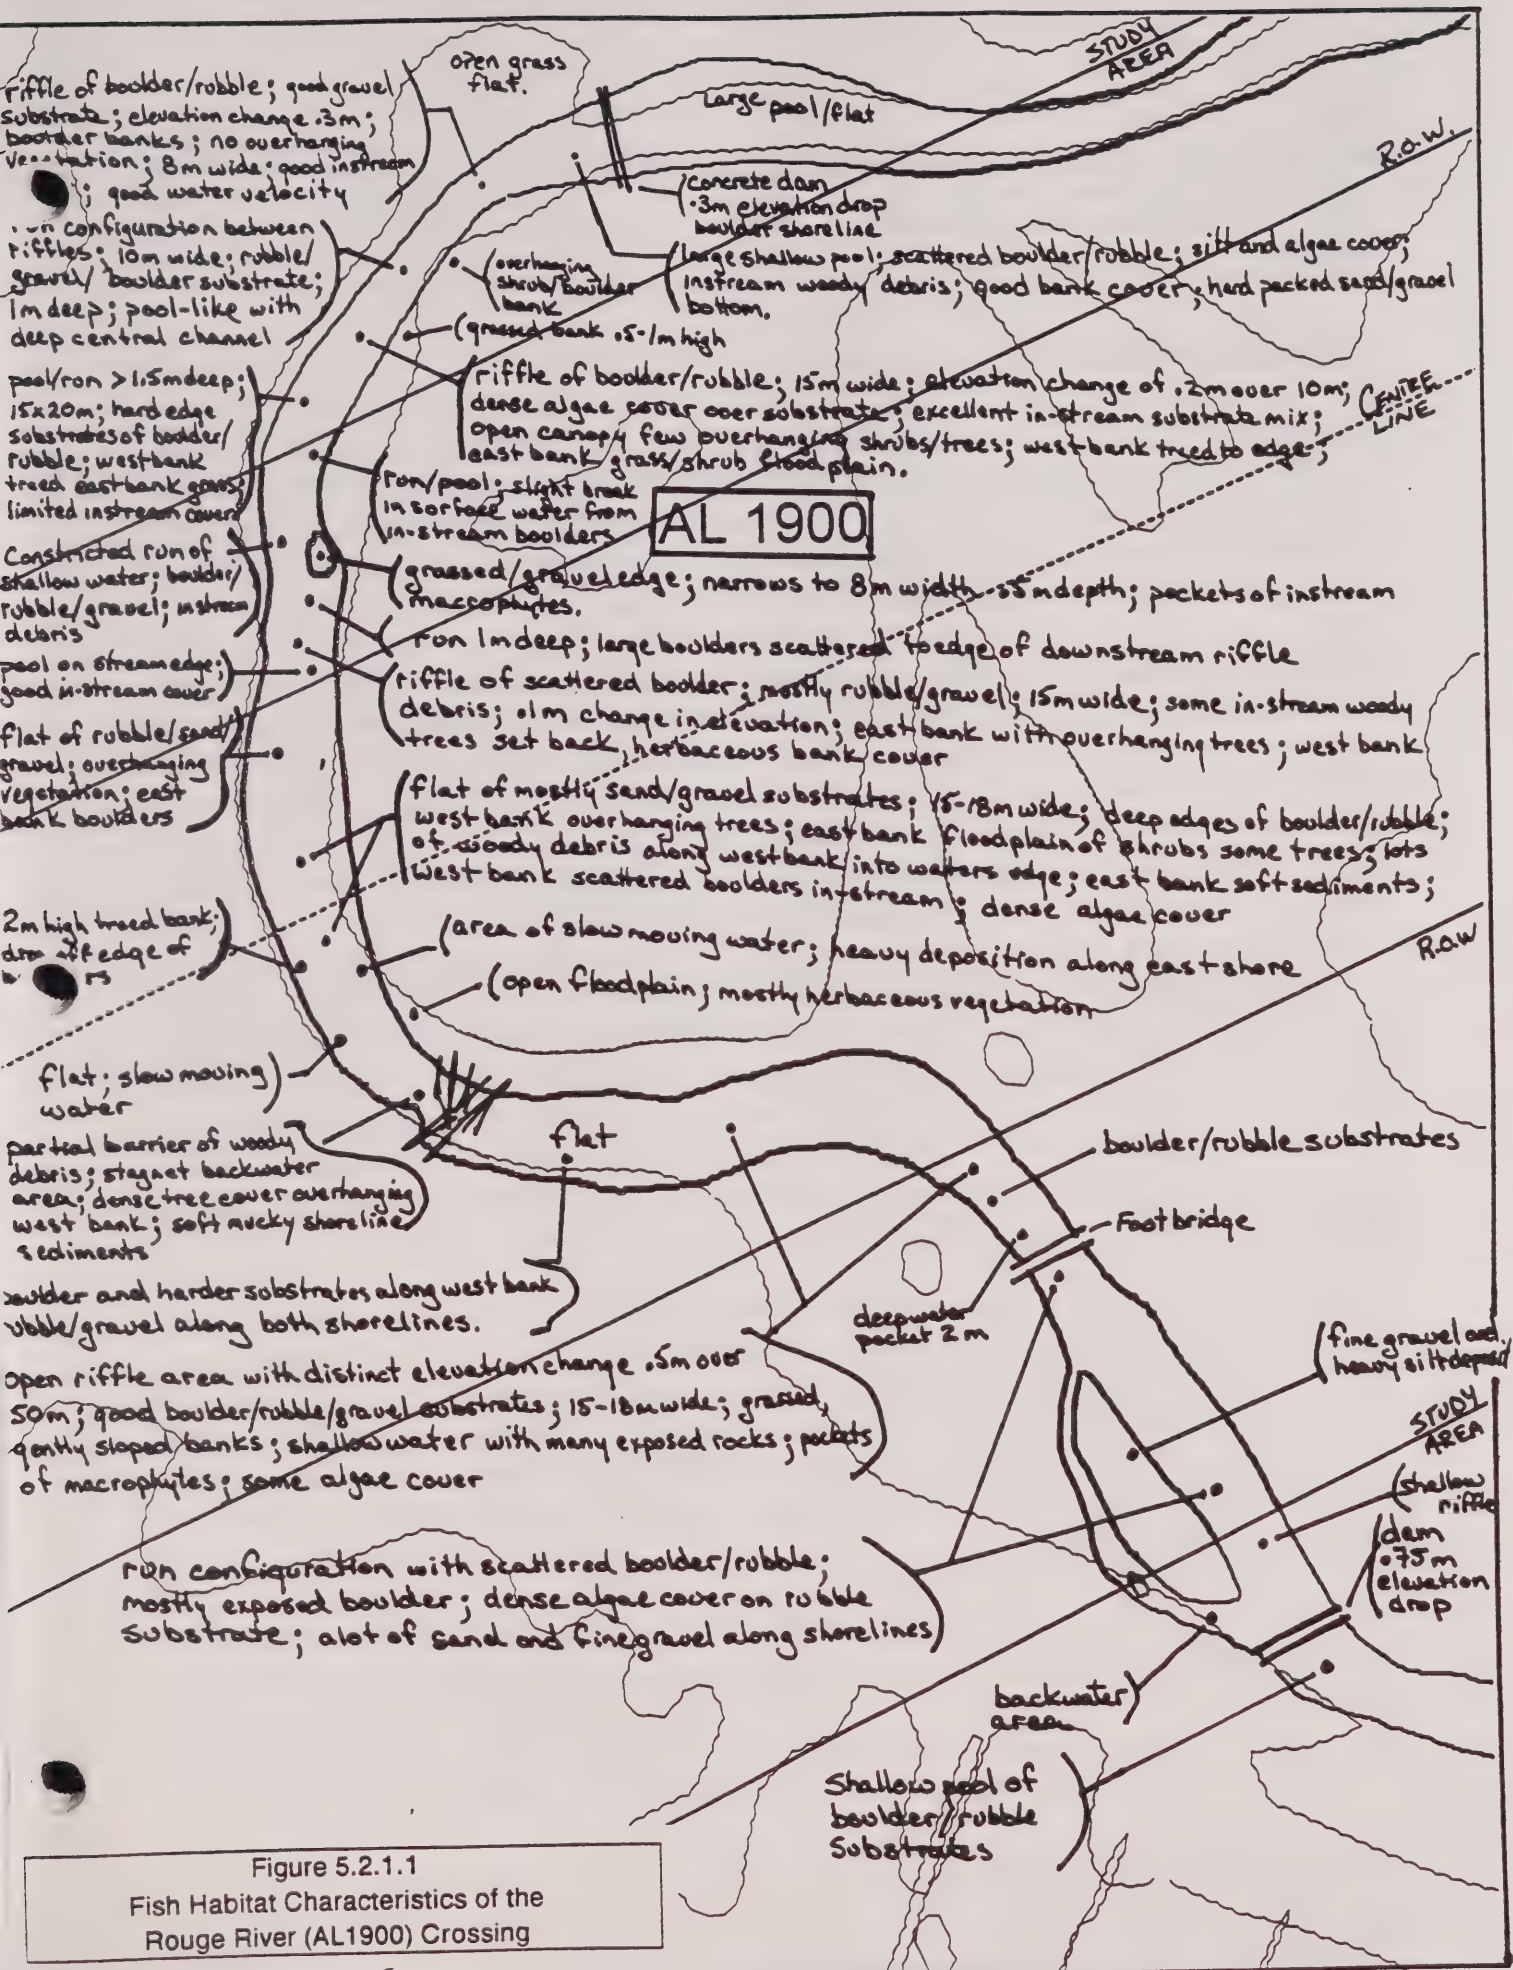 STUDY
AREA
open grass
flat.
Large pool/flat
R.O.W.
riffle of boulder/rubble; good gravel
substrate; elevation change .3m;
boulder banks; no overhanging
8m wide; good instream
; good water velocity
concrete dam
.3m elevation drop
boulder shoreline
configuration between
riffles; 10m wide; rubble/
gravel/ boulder substrate;
1m deep; pool-like with
deep central channel
overhanging
shrub/boulder
bank
large shallow pool; scattered boulder/rubble; silt and algae cover;
instream woody debris; good bank cover; hard packed sand/gravel
bottom.
grassed bank .5-1m high
pool/run >1.5m deep;
15x20m; hard edge
substrates of boulder/
rubble; west bank
treed east bank grass;
limited instream cover
riffle of boulder/rubble; 15m wide; elevation change of .2m over 10m;
dense algae cover over substrate; excellent in-stream substrate mix;
open canopy few overhanging shrubs/trees; west bank treed to edge;
east bank grass/shrub flood plain.
CENTRE
LINE
run/pool; slight break
in surface water from
in-stream boulders
AL 1900
Constricted run of
shallow water; boulder/
rubble/gravel; instream
debris
grassed/gravel edge; narrows to 8m width .5m depth; pockets of instream
macrophytes.
run 1m deep; large boulders scattered to edge of downstream riffle
pool on stream edge;
good in-stream cover
riffle of scattered boulder; mostly rubble/gravel; 15m wide; some in-stream woody
debris; .1m change in elevation; east bank with overhanging trees; west bank
trees set back, herbaceous bank cover
flat of rubble/sand/
gravel; overhanging
vegetation; east
bank boulders
flat of mostly sand/gravel substrates; 15-18m wide; deep edges of boulder/rubble;
west bank overhanging trees; east bank floodplain of shrubs some trees; lots
of woody debris along west bank into waters edge; east bank soft sediments;
west bank scattered boulders in-stream; dense algae cover
2m high treed bank;
edge of
area of slow moving water; heavy deposition along east shore
R.O.W
open floodplain; mostly herbaceous vegetation
flat; slow moving
water
partial barrier of woody
debris; stagnet backwater
area; dense tree cover overhanging
west bank; soft mucky shoreline
sediments
flat
boulder/rubble substrates
Footbridge
boulder and harder substrates along west bank
rubble/gravel along both shorelines.
deepwater
pocket 2m
fine gravel and
heavy silt deposit
Open riffle area with distinct elevation change .5m over
50m; good boulder/rubble/gravel substrates; 15-18m wide; grassed,
gently sloped banks; shallow water with many exposed rocks; pockets
of macrophytes; some algae cover
STUDY
AREA
shallow
riffle
dam
.75m
elevation
drop
run configuration with scattered boulder/rubble;
mostly exposed boulder; dense algae cover on rubble
substrate; alot of sand and fine gravel along shorelines
backwater
area
Shallow pool of
boulder/rubble
substrates
Figure 5.2.1.1
Fish Habitat Characteristics of the
Rouge River (AL1900) Crossing